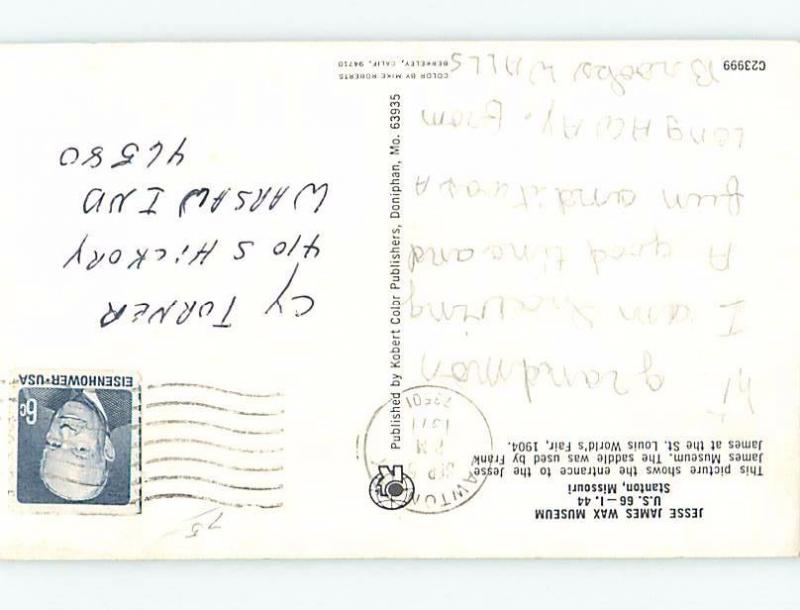 JESSE JAMES WAX MUSEUM
U.S. 66 – I. 44
Stanton, Missouri
This picture shows the entrance to the Jesse
James Museum. The saddle was used by Frank
James at the St. Louis World's Fair, 1904.
hi grandmon
I am hawing
A good time and
fun and it was a
long AWAY. from
Brooks WALLS
C23999
COLOR BY MIKE ROBERTS
BERKELEY, CALIF. 94710
Published by Kobert Color Publishers, Doniphan, Mo. 63935
LAWTON
SEP
PM
1971
73501
EISENHOWER·USA
6c
75
CY TURNER
410 S HICKORY
WARSAW IND
46580